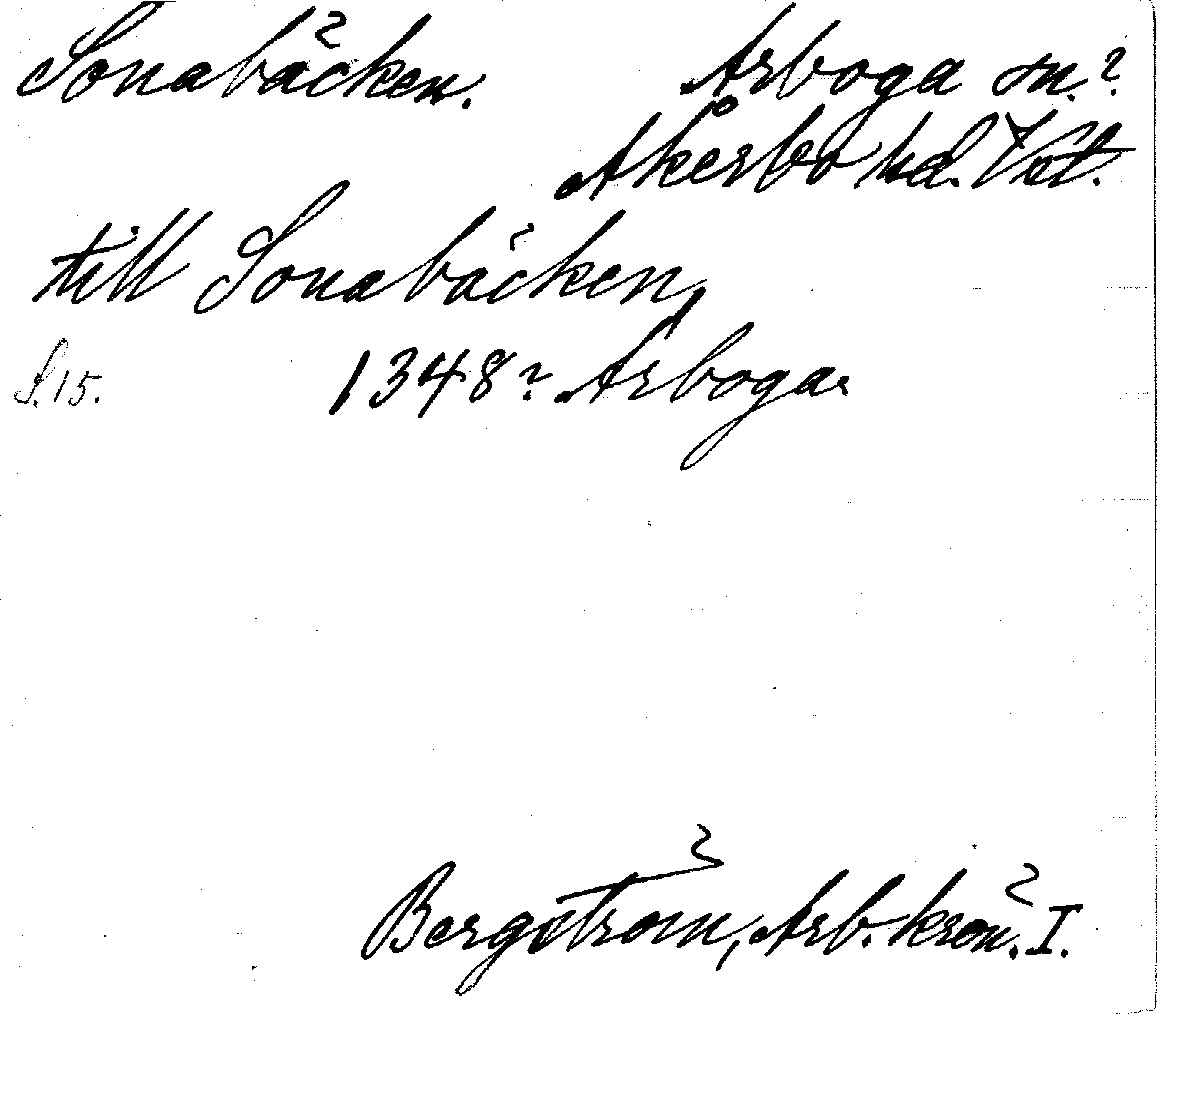 Sonabäcken. Arboga sn.?
Åkerbo hd. Vstl.
till Sonabäcken,
S. 15. 1348? Arboga.
Bergström, Arb. krön. I.